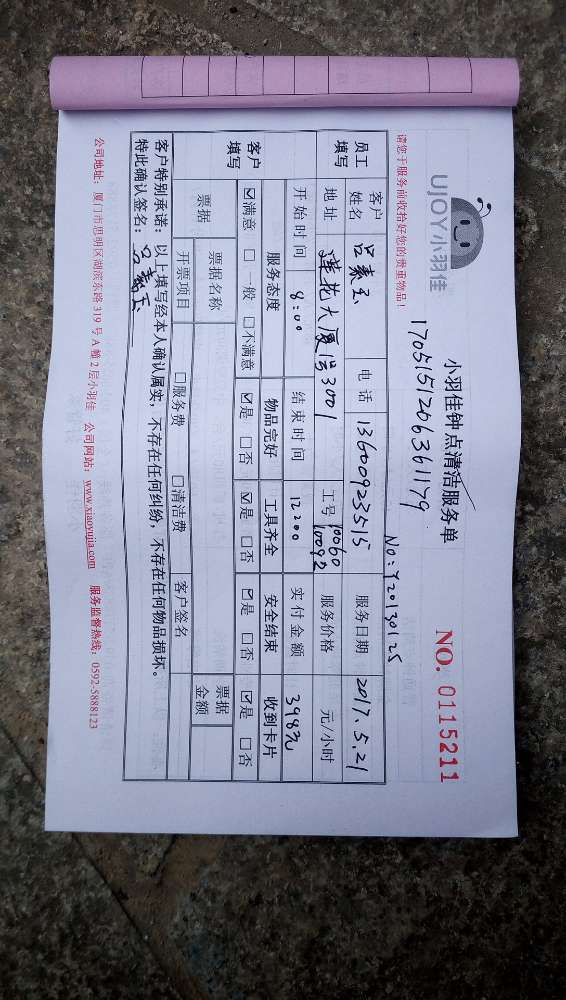 UJOY小羽佳
小羽佳钟点清洁服务单
NO. 0115211
1705151206361179
请您于服务前收拾好您的贵重物品!
No: Y20130125
员工填写
客户姓名 吕素玉 电话 13600923515 服务日期 2017.5.21
地址 莲花大厦 3001 工号 10060 10092 服务价格 元/小时
开始时间 8:00 结束时间 12:00 实付金额 398元
客户填写
服务态度 物品完好 工具齐全 安全结束 收到卡片
☑满意 □一般 □不满意 ☑是 □否 ☑是 □否 ☑是 □否 ☑是 □否
票据 票据名称 票据金额
开票项目 □服务费 □清洁费 客户签名
客户特别承诺: 以上填写经本人确认属实, 不存在任何纠纷, 不存在任何物品损坏。
特此确认签名: 吕素玉
公司地址: 厦门市思明区湖滨东路 319 号 A 幢 2 层小羽佳 公司网站: www.xiaoyujia.com 服务监督热线: 0592-5888123